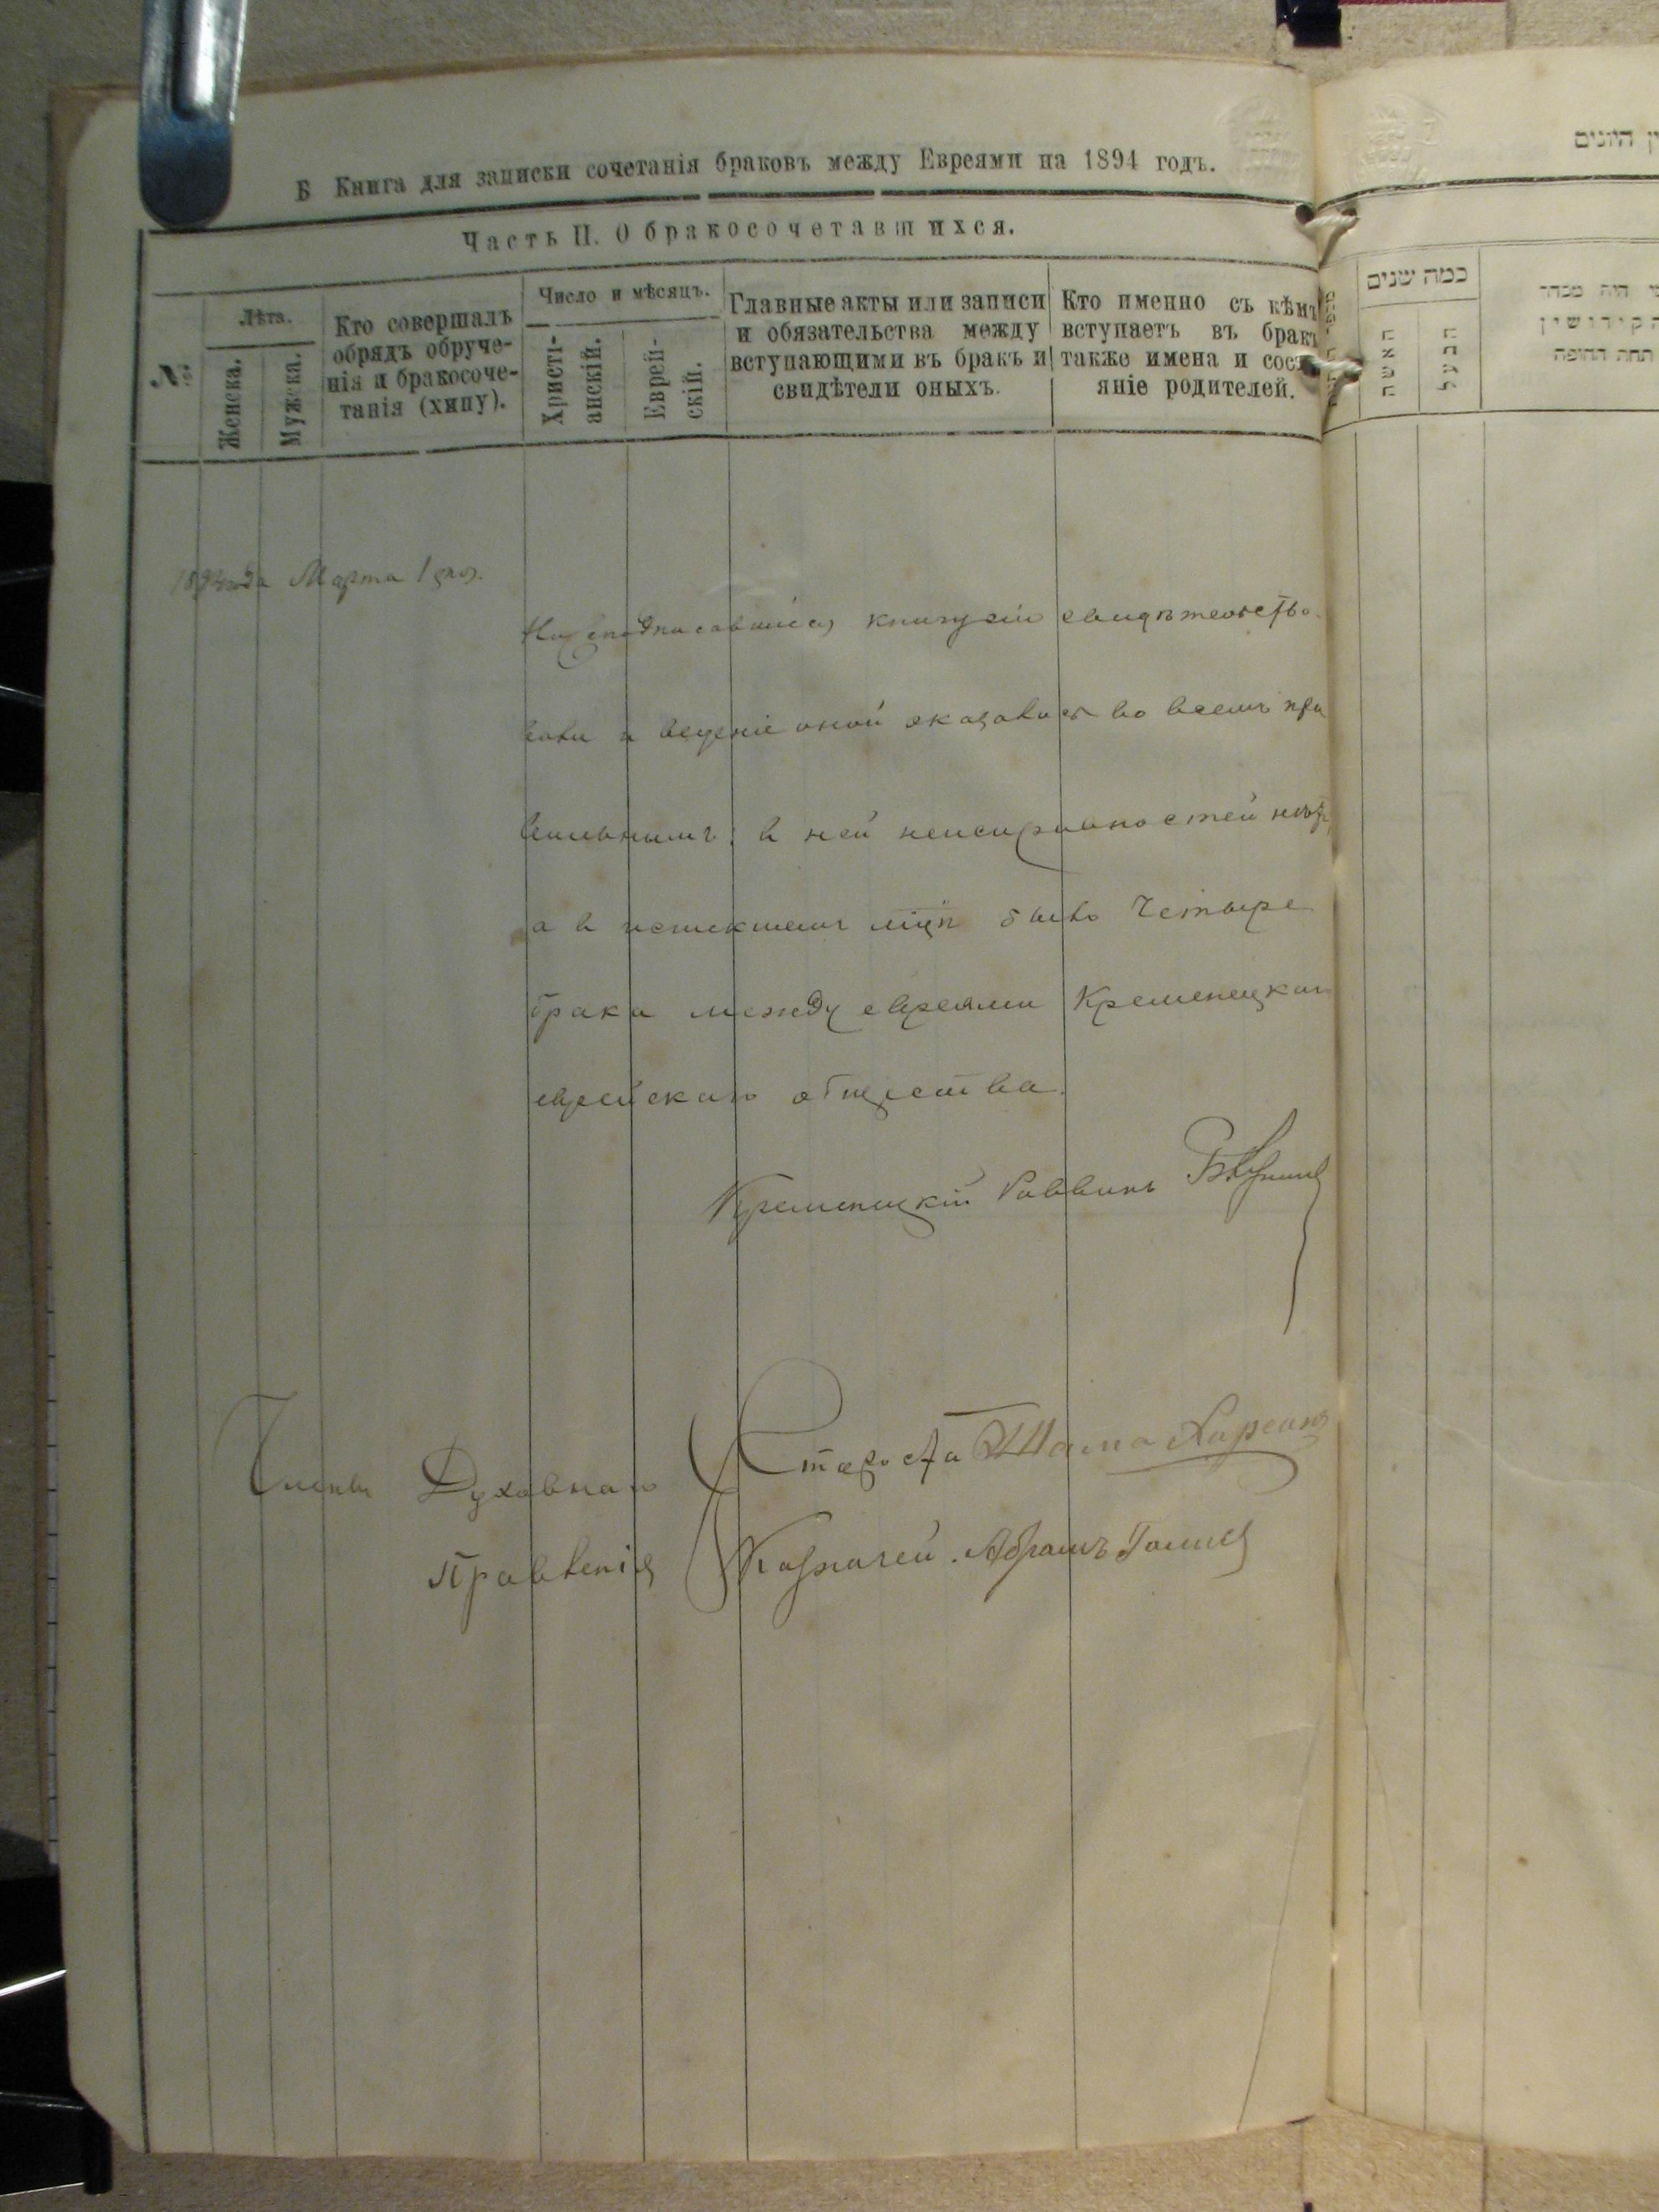 Б Книга для записки сочетанія браковъ между Евреями на 1894 годъ.
Часть II. О бракосочетавшихся.
№
Лѣта.
Женска.
Мужска.
Кто совершалъ
обрядъ обруче-
нія и бракосоче-
танія (хипу).
Число и мѣсяцъ.
Христі-
анскій.
Еврей-
скій.
Главные акты или записи
и обязательства между
вступающими въ бракъ и
свидѣтели оныхъ.
Кто именно съ кѣмъ
вступаетъ въ бракъ
также имена и сост
яніе родителей.
1894 года Марта 1 дня.
Нижеподписавшіеся, книгу сію свидѣтельство-
вали и веденіе оной оказалось во всемъ пра
вильнымъ; в ней неисправностей нѣтъ,
а в истекшемъ мцѣ было четыре
брака между евреями Кременецкаго
еврейскаго общества.
Кременецкій Раввинъ
Члены Духовнаго
Правленія
Староста
Казначей. Абрамъ
כמה שנים
האשה
החתן
היה מסדר
הקידושין
תחת החופה